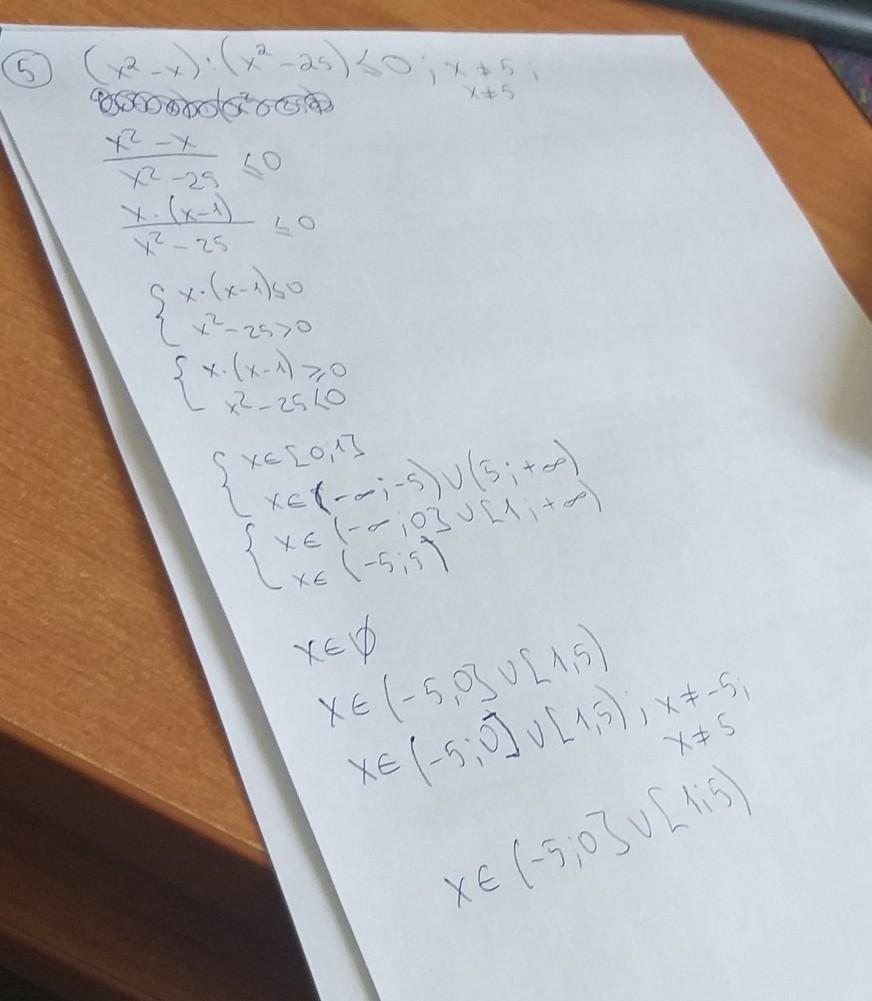 5 (x² - x) : (x² - 25) ≤ 0; x ≠ 5;
x ≠ 5
x² - x / x² - 25 ≤ 0
x · (x - 1) / x² - 25 ≤ 0
{ x · (x - 1) ≤ 0
x² - 25 > 0
{ x · (x - 1) ≥ 0
x² - 25 < 0
{ x ∈ [0; 1]
x ∈ (-∞; -5) ∪ (5; +∞)
{ x ∈ (-∞; 0] ∪ [1; +∞)
x ∈ (-5; 5)
x ∈ ∅
x ∈ (-5; 0] ∪ [1; 5)
x ∈ (-5; 0] ∪ [1; 5); x ≠ -5;
x ≠ 5
x ∈ (-5; 0] ∪ [1; 5)